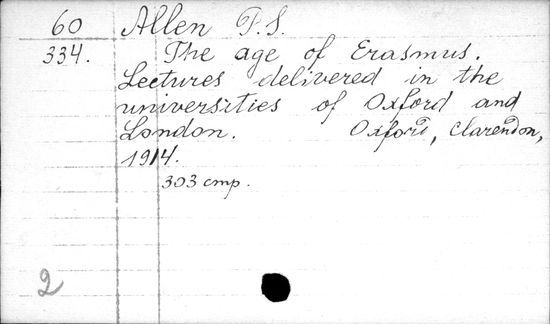 60 Allen P.S.
334. The age of Erasmus.
Lectures delivered in the
universities of Oxford and
London. Oxford, Clarendon,
1914.
303 cmp.
2